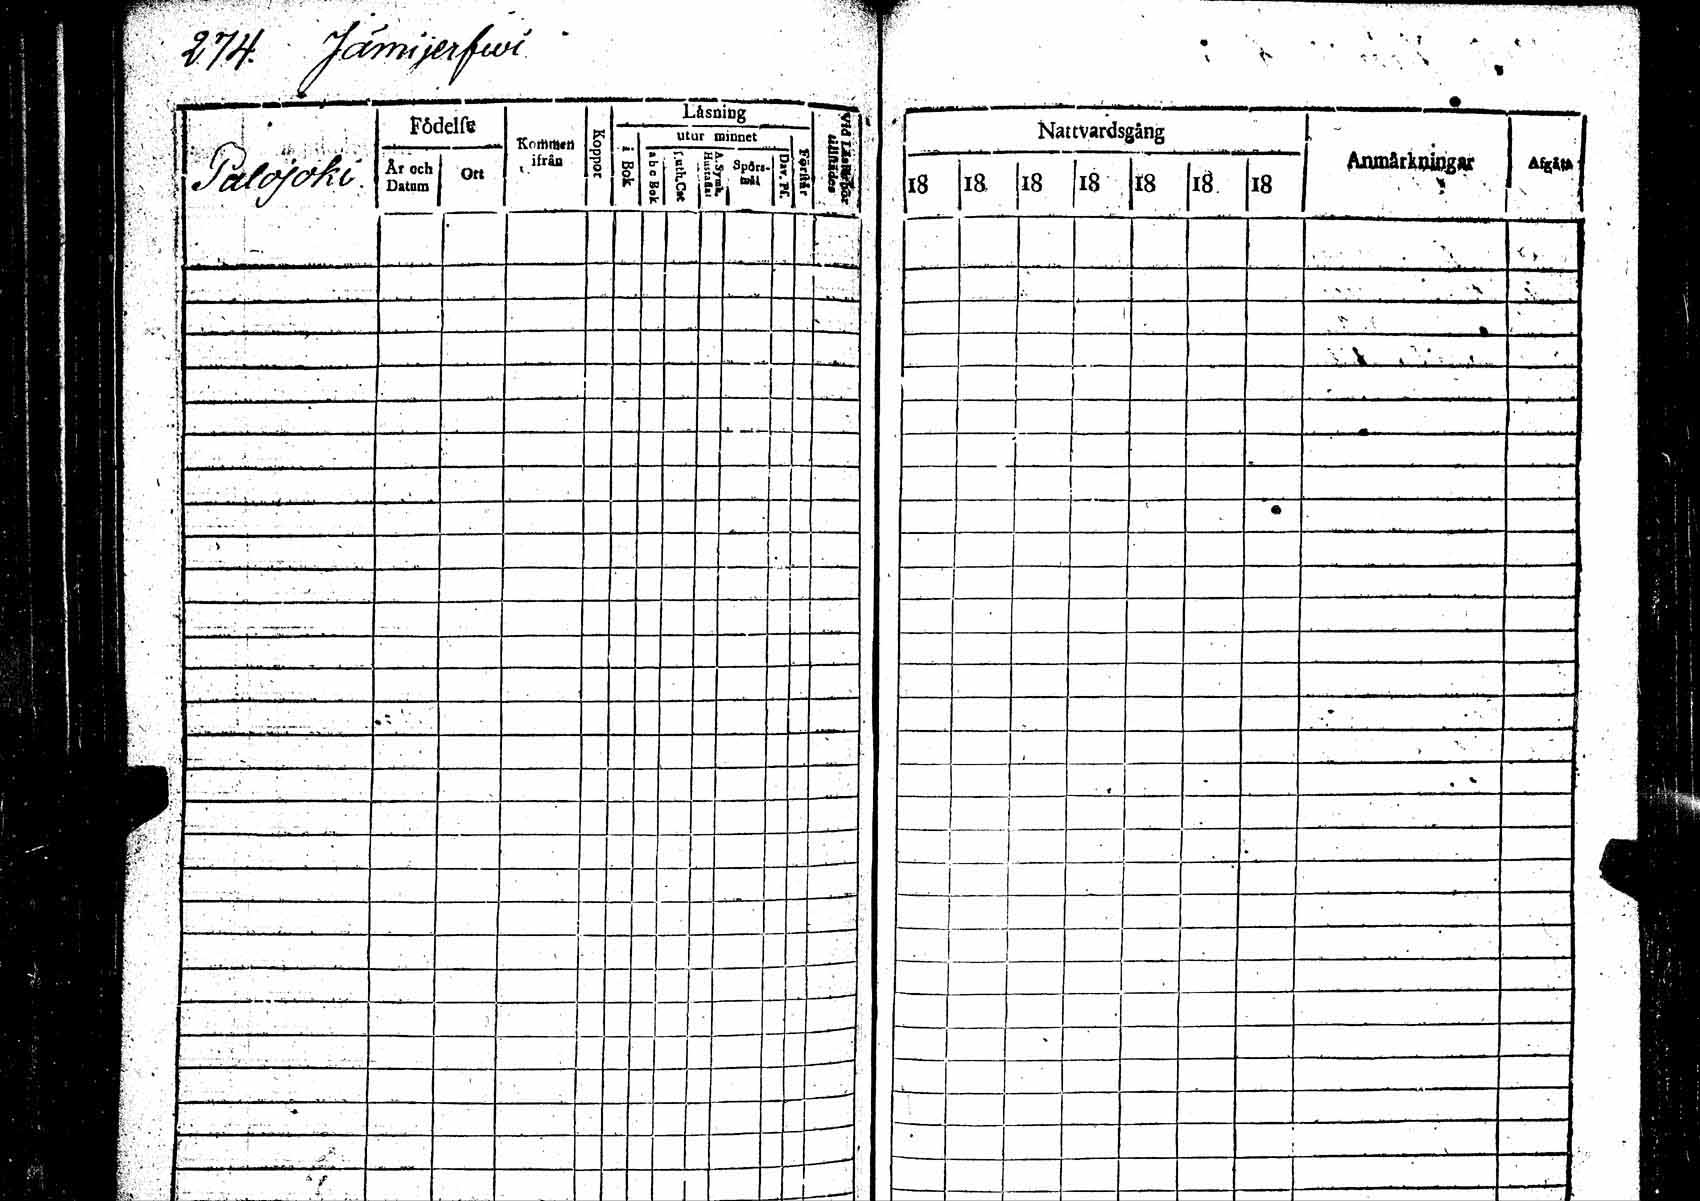 274. Jämijerfwi
Palojoki
Födelse
År och Datum
Ort
Kommen ifrån
Koppor
Läsning
i Bok
utur minnet
a b c Bok
Luth. Cat
A. Symb. Hustafla
Spörs-mål
Dav. Ps.
Förstår
Vid Läsförhör tillstädes
Nattvardsgång
18 18 18 18 18 18 18
Anmärkningar
Afgått